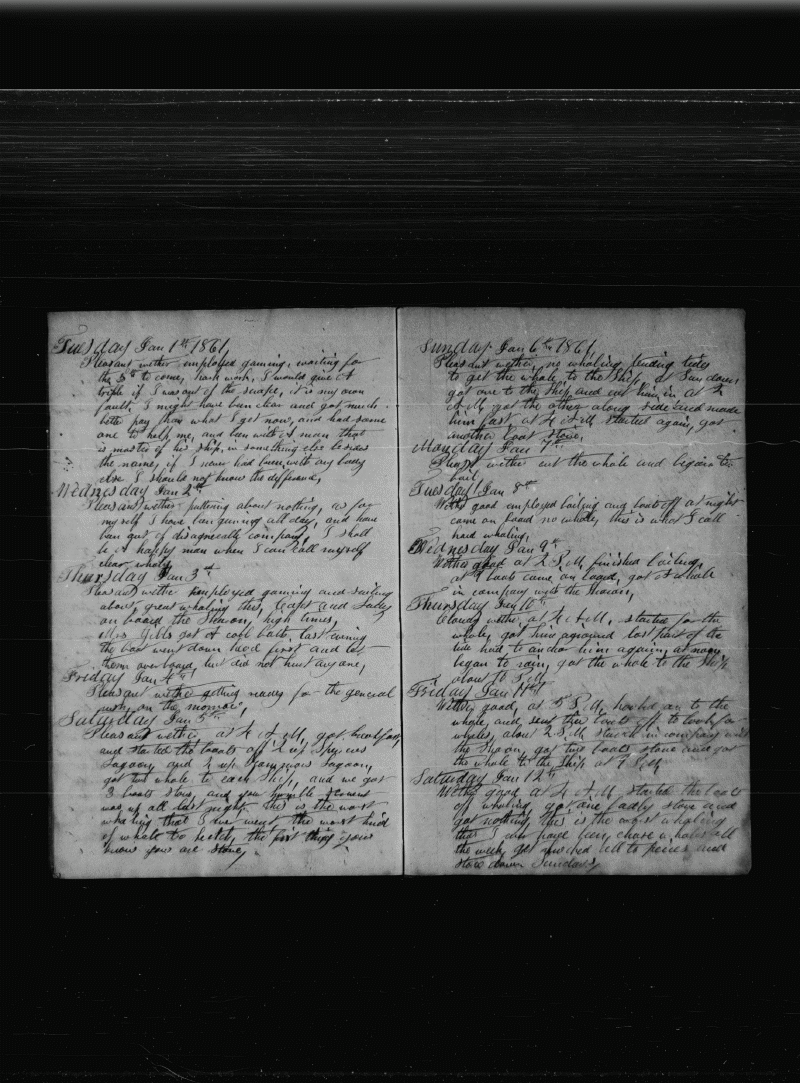 Tuesday Jan 1st 1861,
Pleasant wether employed gaming, waiting for
the 5th to come, hard work, I would give A
triffle if I was out of the scrape, it is my own
fault, I might have been clear and got much
better pay than what I get now, and had some
one to help me, and been with A man that
is master of his ship, in something else besides
the name, if I never had been with any body
else I should not know the difference,
Wednesday Jan 2nd
Pleasant wether puttering about nothing, as for
my self I have been gaming all day, and have
been out of disagreeable company, I shall
be A happy man when I can call myself
clear wholy
Thursday Jan 3rd
Pleasant wether employed gaming and sailing
about, great whaling this,
on board the Sharon, high times,
Mrs Gibbs got A cool bath, last evening
the boat went down head first and let
them overboard, but did not hurt any one,
Friday Jan 4th
Pleasant wether getting ready for the general
push, on the morrow,
Saturday Jan 5th
Pleasant wether, at 4 A M, got breakfast,
and started the boats off 2 up
Lagoon, and 2 up Lagoon,
got one whale to each ship, and we got
3 boats stove, and your humble servant
was up all last night this is the worst
whaleing that I ever went the worst kind
of whales to the first thing you
know you are stove,
Sunday Jan 6th 1861,
Pleasant wether, no whaling tending tides
to get the whale to the ship, at Sun down
got one to the ship and cut him in at 4
A M, got the other along side and made
him fast, at 4 A M started again, got
another boat stove,
Monday Jan 7th
Pleast wether cut the whale and began to
boil,
Tuesday Jan 8th
Wether good employed boiling and boats off at night
came on board no whale, this is what I call
hard whaling,
Wednesday Jan 9th
Wether good at 2 P.M, finished boiling,
at 9 boats came on board, got A whale
in company with the Sharon,
Thursday Jan 10th
Cloudy wether, at 4 A.M, started for the
whale, got him aground last part of the
tide had to anchor him again, at noon
began to rain, got the whale to the Ship
about 10 P.M
Friday Jan 11th
Wether good, at 5 P.M, hooked on to the
whale, and sent two boats off to look for
whales, about 2 P.M struck in company with
the Sharon, got two boats stove and got
the whale to the ship at 7 P.M
Saturday Jan 12th
Wether good at 4 A M, started the boats
off whaling, got one badly stove and
got nothing, this is the worst whaling
that I ever have seen, chase whales all
the week, get all to peices and
stow down Sundays